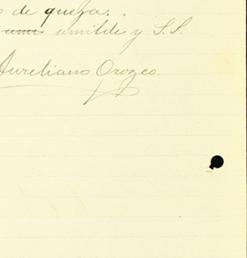 de queja.
umilde y S. S.
Aureliano Orozco.